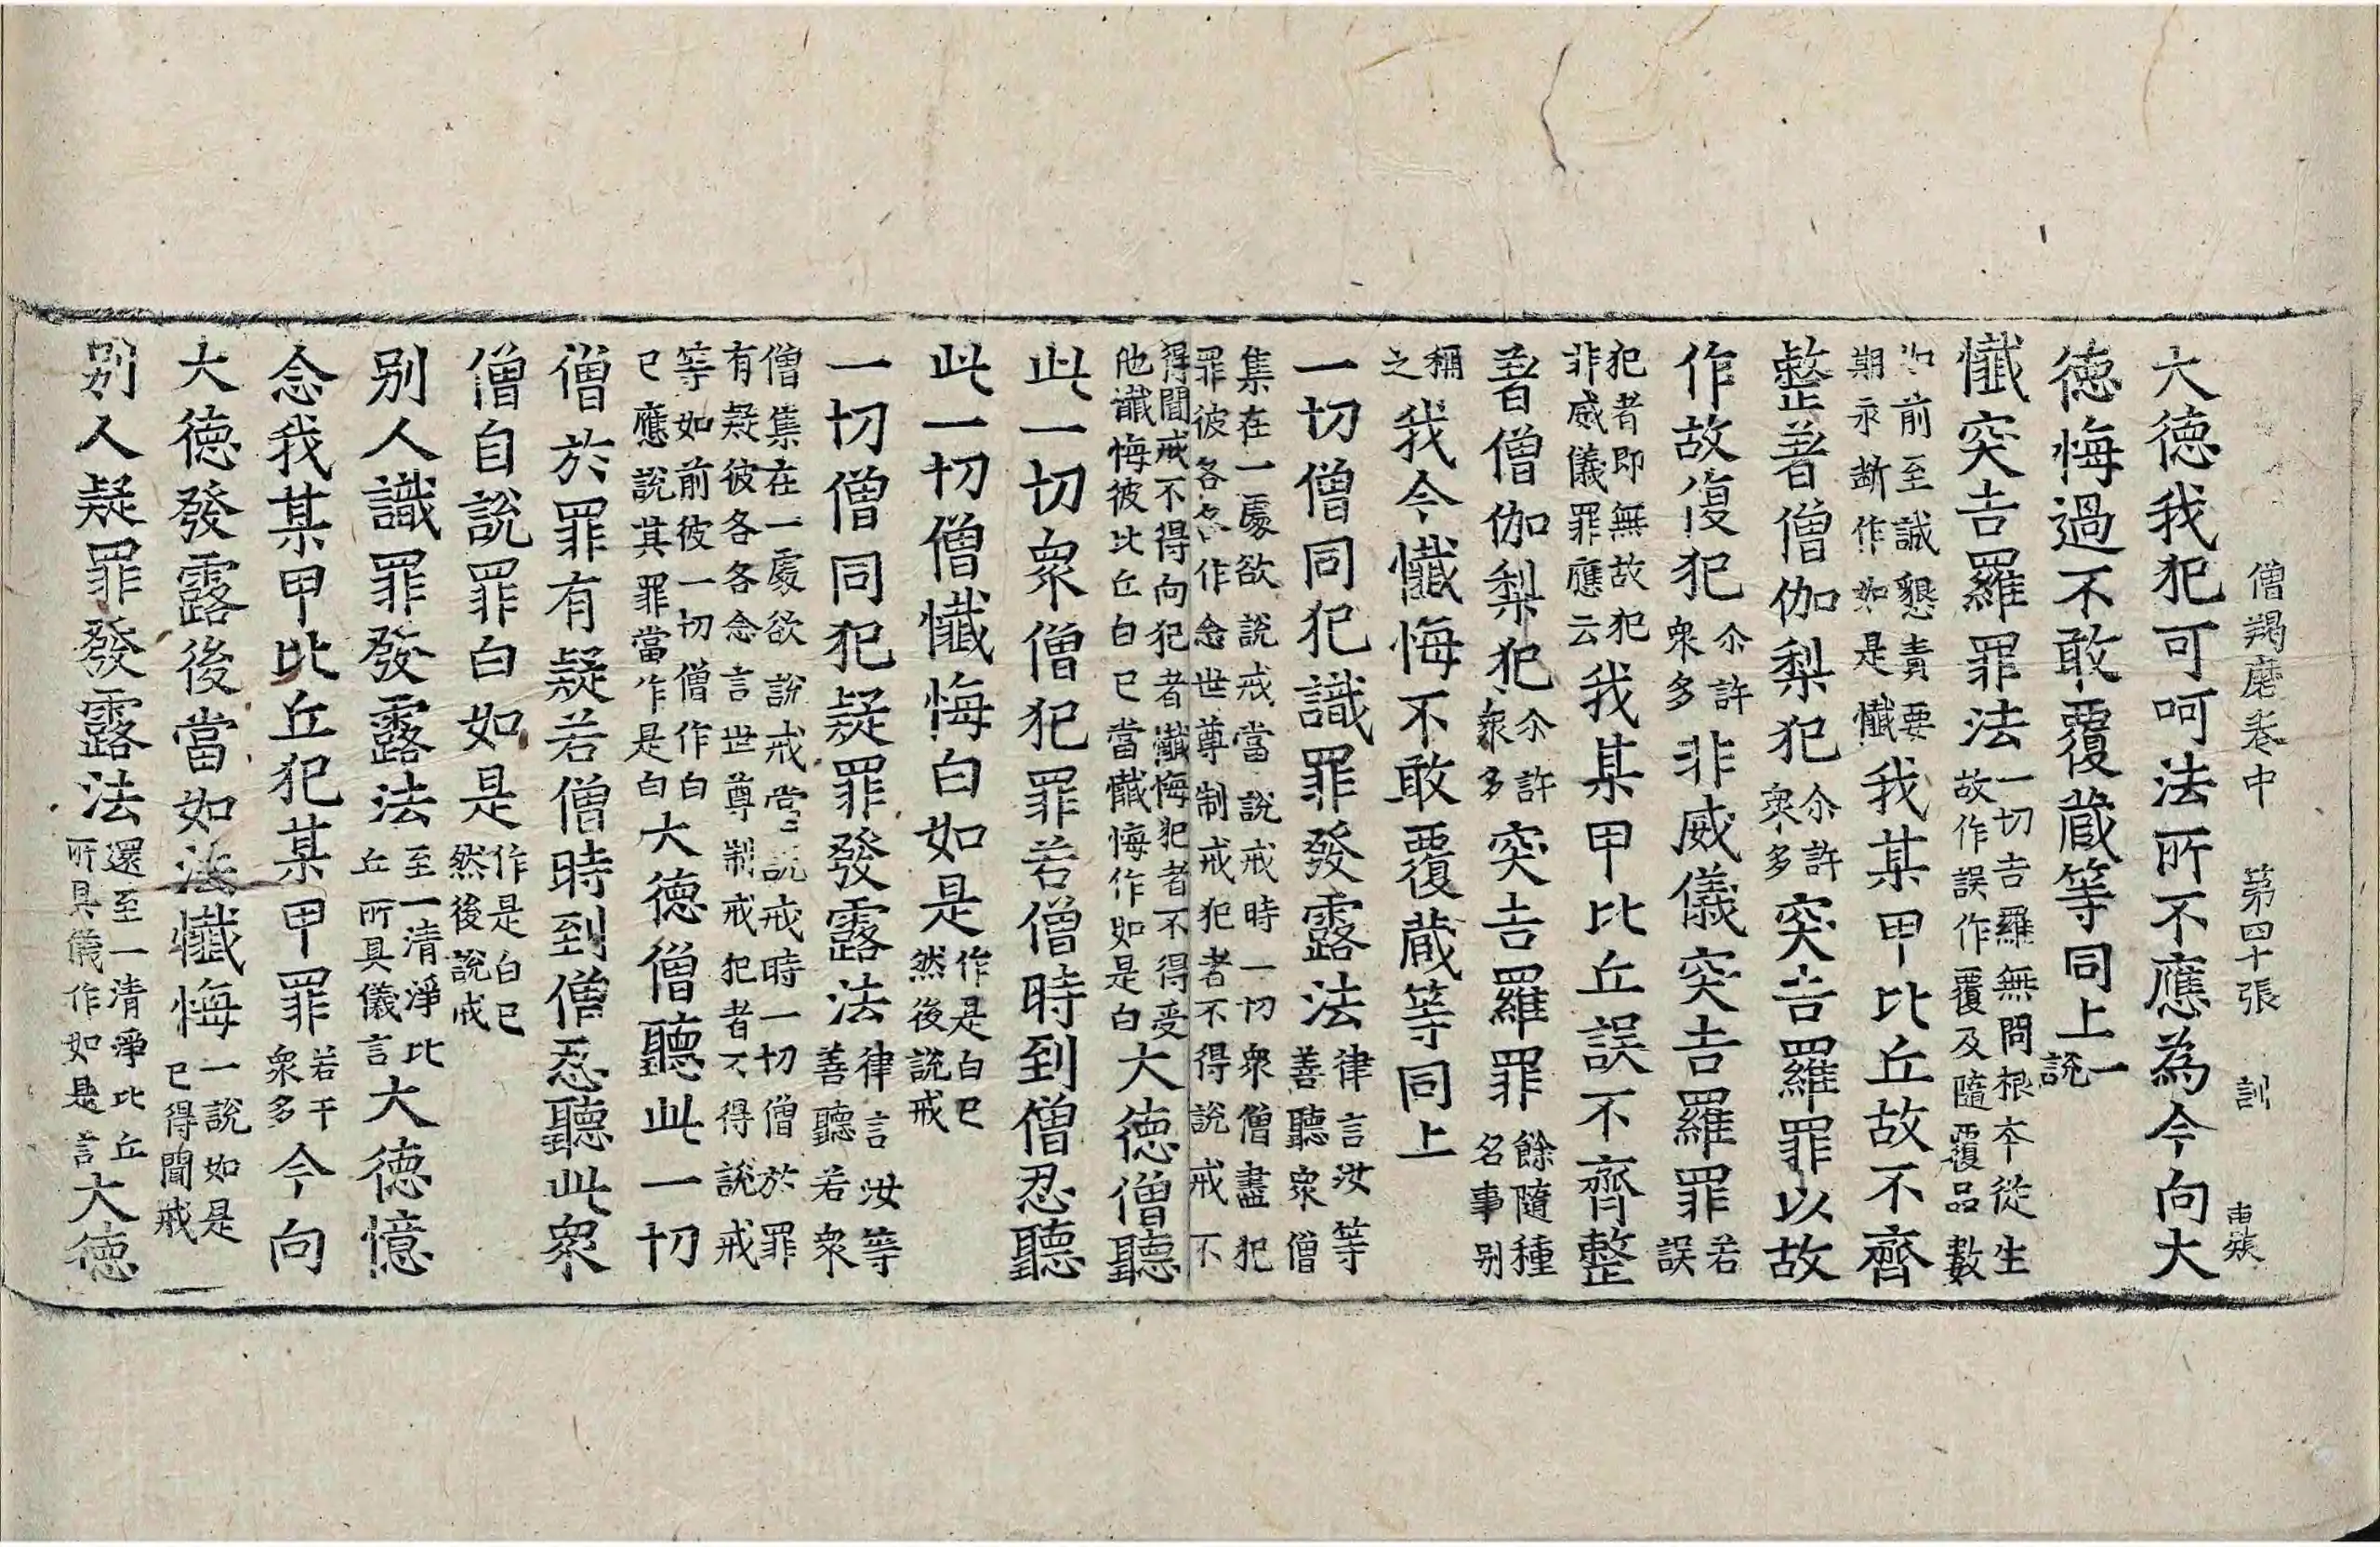 僧羯磨卷中 第四十張 訓
大德我犯可呵法所不應為今向大
德悔過不敢覆蔵等同上一說
懺突吉羅罪法一切吉羅無問根夲從生故作誤作覆及隨覆品數
如前至誠懇責要期永断作如是懺我某甲比丘故不齊
整著僧伽梨犯尒許衆多突吉羅罪以故
作故復犯尒許衆多非威儀突吉羅罪若誤
犯者即無故犯非威儀罪應云我某甲比丘誤不齊整
著僧伽梨犯尒許衆多突吉羅罪餘隨種名事別
稱之我今懺悔不敢覆蔵等同上
一切僧同犯識罪發露法律言汝等善聽衆僧
集在一處欲說戒當說戒時一切衆僧盡犯罪彼各各作念世尊制戒犯者不得說戒不
得聞戒不得向犯者懺悔犯者不得受他懺悔彼比丘白已當懺悔作如是白大德僧聽
此一切衆僧犯罪若僧時到僧忍聽
此一切僧懺悔白如是作是白已然後說戒
一切僧同犯疑罪發露法律言汝等善聽若衆
僧集在一處欲說戒當說戒時一切僧於罪有疑彼各各念言世尊制戒犯者不得說戒
等如前彼一切僧作白已應說其罪當作是白大德僧聽此一切
僧於罪有疑若僧時到僧忍聽此衆
僧自說罪白如是作是白已然後說戒
別人識罪發露法至一清淨比丘所具儀言大德憶
念我某甲比丘犯某甲罪若干衆多今向
大德發露後當如法懺悔一說如是已得聞戒
別人疑罪發露法還至一清淨比丘所具儀作如是言大德